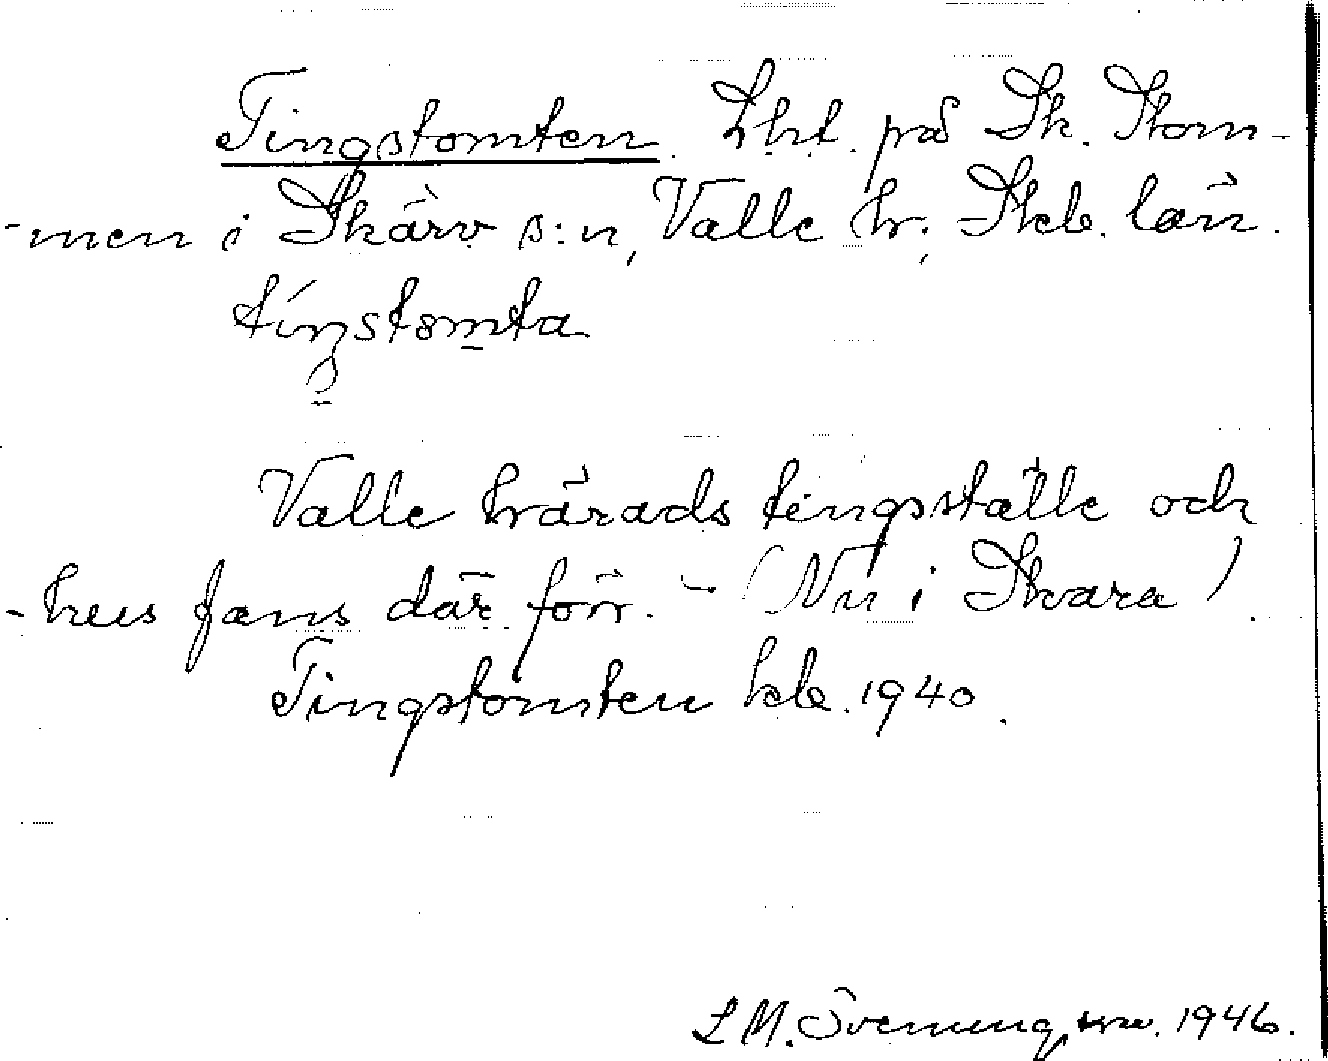 Tingstomten. Lht. på Sk. Stom-
-men i Skärv s:n, Valle hr; Skb. län.
tíŋstomta
Valle härads tingställe och
-hus fans där förr. - (Nu i Skara)
Tingstomten kb. 1940.
L M. Svenungsson. 1946.